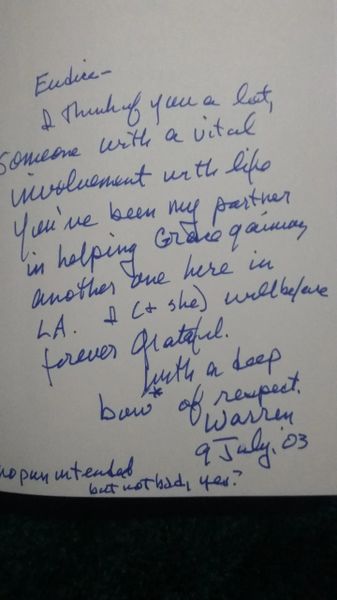 Eudice—
I think of you a lot,
someone with a vital
involvement with life
You've been my partner
in helping Grace gain in
another one here in
LA. I (& she) will before
forever grateful.
With a deep
bow* of respect.
Warren
9 July, '03
no pun intended
but not bad, yes?